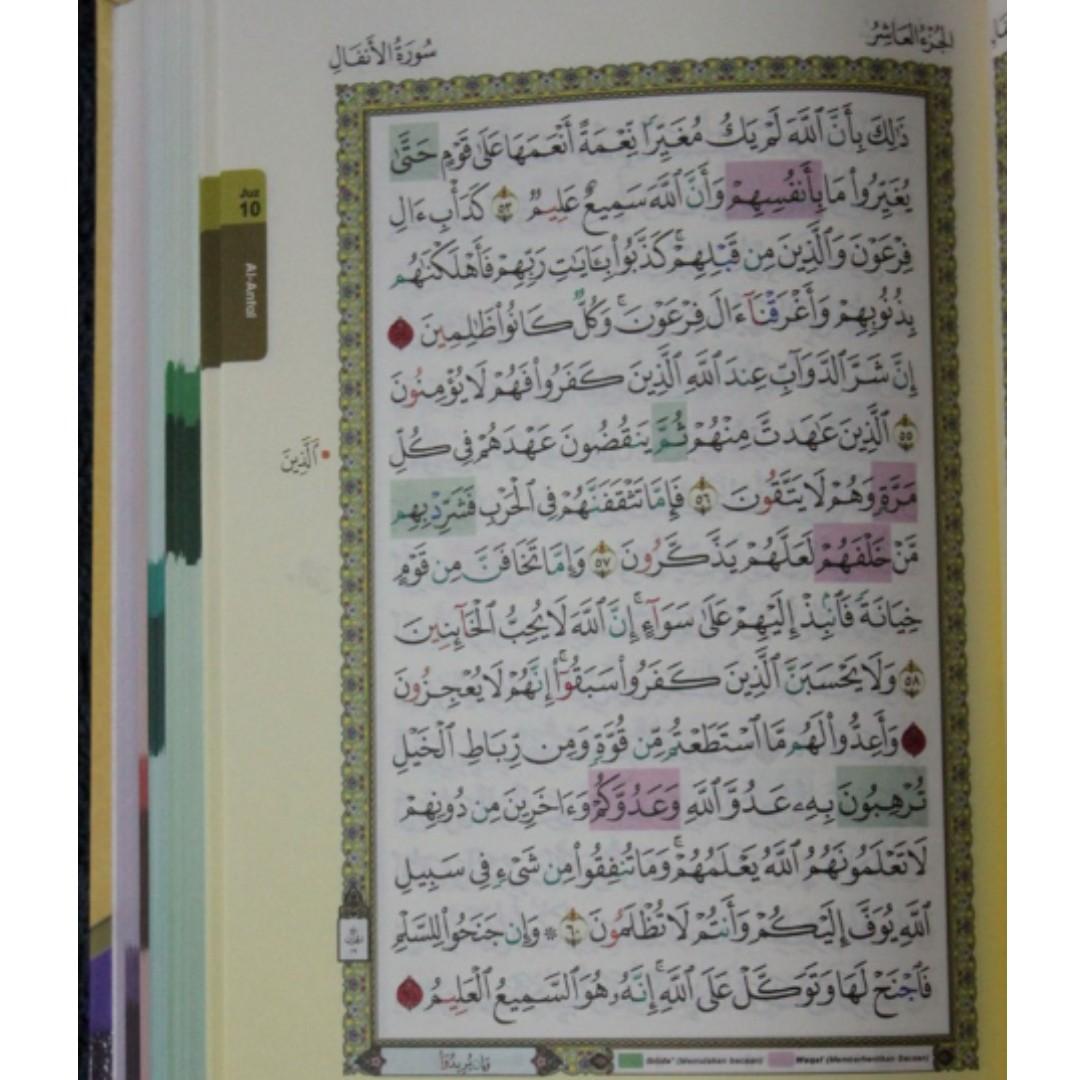 سُورَةُ الأَنفَالِ
الجُزْءُ العَاشِرُ
ذَٰلِكَ بِأَنَّ ٱللَّهَ لَمْ يَكُ مُغَيِّرًا نِّعْمَةً أَنْعَمَهَا عَلَىٰ قَوْمٍ حَتَّىٰ
يُغَيِّرُوا۟ مَا بِأَنفُسِهِمْ وَأَنَّ ٱللَّهَ سَمِيعٌ عَلِيمٌ ٥٣ كَدَأْبِ ءَالِ
فِرْعَوْنَ وَٱلَّذِينَ مِن قَبْلِهِمْ ۚ كَذَّبُوا۟ بِـَٔايَـٰتِ رَبِّهِمْ فَأَهْلَكْنَـٰهُم
بِذُنُوبِهِمْ وَأَغْرَقْنَآ ءَالَ فِرْعَوْنَ ۚ وَكُلٌّ كَانُوا۟ ظَـٰلِمِينَ
إِنَّ شَرَّ ٱلدَّوَآبِّ عِندَ ٱللَّهِ ٱلَّذِينَ كَفَرُوا۟ فَهُمْ لَا يُؤْمِنُونَ
٥٥ ٱلَّذِينَ عَـٰهَدتَّ مِنْهُمْ ثُمَّ يَنقُضُونَ عَهْدَهُمْ فِى كُلِّ
مَرَّةٍ وَهُمْ لَا يَتَّقُونَ ٥٦ فَإِمَّا تَثْقَفَنَّهُمْ فِى ٱلْحَرْبِ فَشَرِّدْ بِهِم
مَّنْ خَلْفَهُمْ لَعَلَّهُمْ يَذَّكَّرُونَ ٥٧ وَإِمَّا تَخَافَنَّ مِن قَوْمٍ
خِيَانَةً فَٱنۢبِذْ إِلَيْهِمْ عَلَىٰ سَوَآءٍ ۚ إِنَّ ٱللَّهَ لَا يُحِبُّ ٱلْخَآئِنِينَ
٥٨ وَلَا يَحْسَبَنَّ ٱلَّذِينَ كَفَرُوا۟ سَبَقُوٓا۟ ۚ إِنَّهُمْ لَا يُعْجِزُونَ
وَأَعِدُّوا۟ لَهُم مَّا ٱسْتَطَعْتُم مِّن قُوَّةٍ وَمِن رِّبَاطِ ٱلْخَيْلِ
تُرْهِبُونَ بِهِۦ عَدُوَّ ٱللَّهِ وَعَدُوَّكُمْ وَءَاخَرِينَ مِن دُونِهِمْ
لَا تَعْلَمُونَهُمُ ٱللَّهُ يَعْلَمُهُمْ ۚ وَمَا تُنفِقُوا۟ مِن شَىْءٍ فِى سَبِيلِ
ٱللَّهِ يُوَفَّ إِلَيْكُمْ وَأَنتُمْ لَا تُظْلَمُونَ ٦٠ ۞ وَإِن جَنَحُوا۟ لِلسَّلْمِ
فَٱجْنَحْ لَهَا وَتَوَكَّلْ عَلَى ٱللَّهِ ۚ إِنَّهُۥ هُوَ ٱلسَّمِيعُ ٱلْعَلِيمُ
ٱلَّذِينَ
Juz
10
Al-Anfal
وَإِن يُرِيدُوٓا۟
Ibtida' (Memulakan bacaan)
Waqaf (Memberhentikan bacaan)